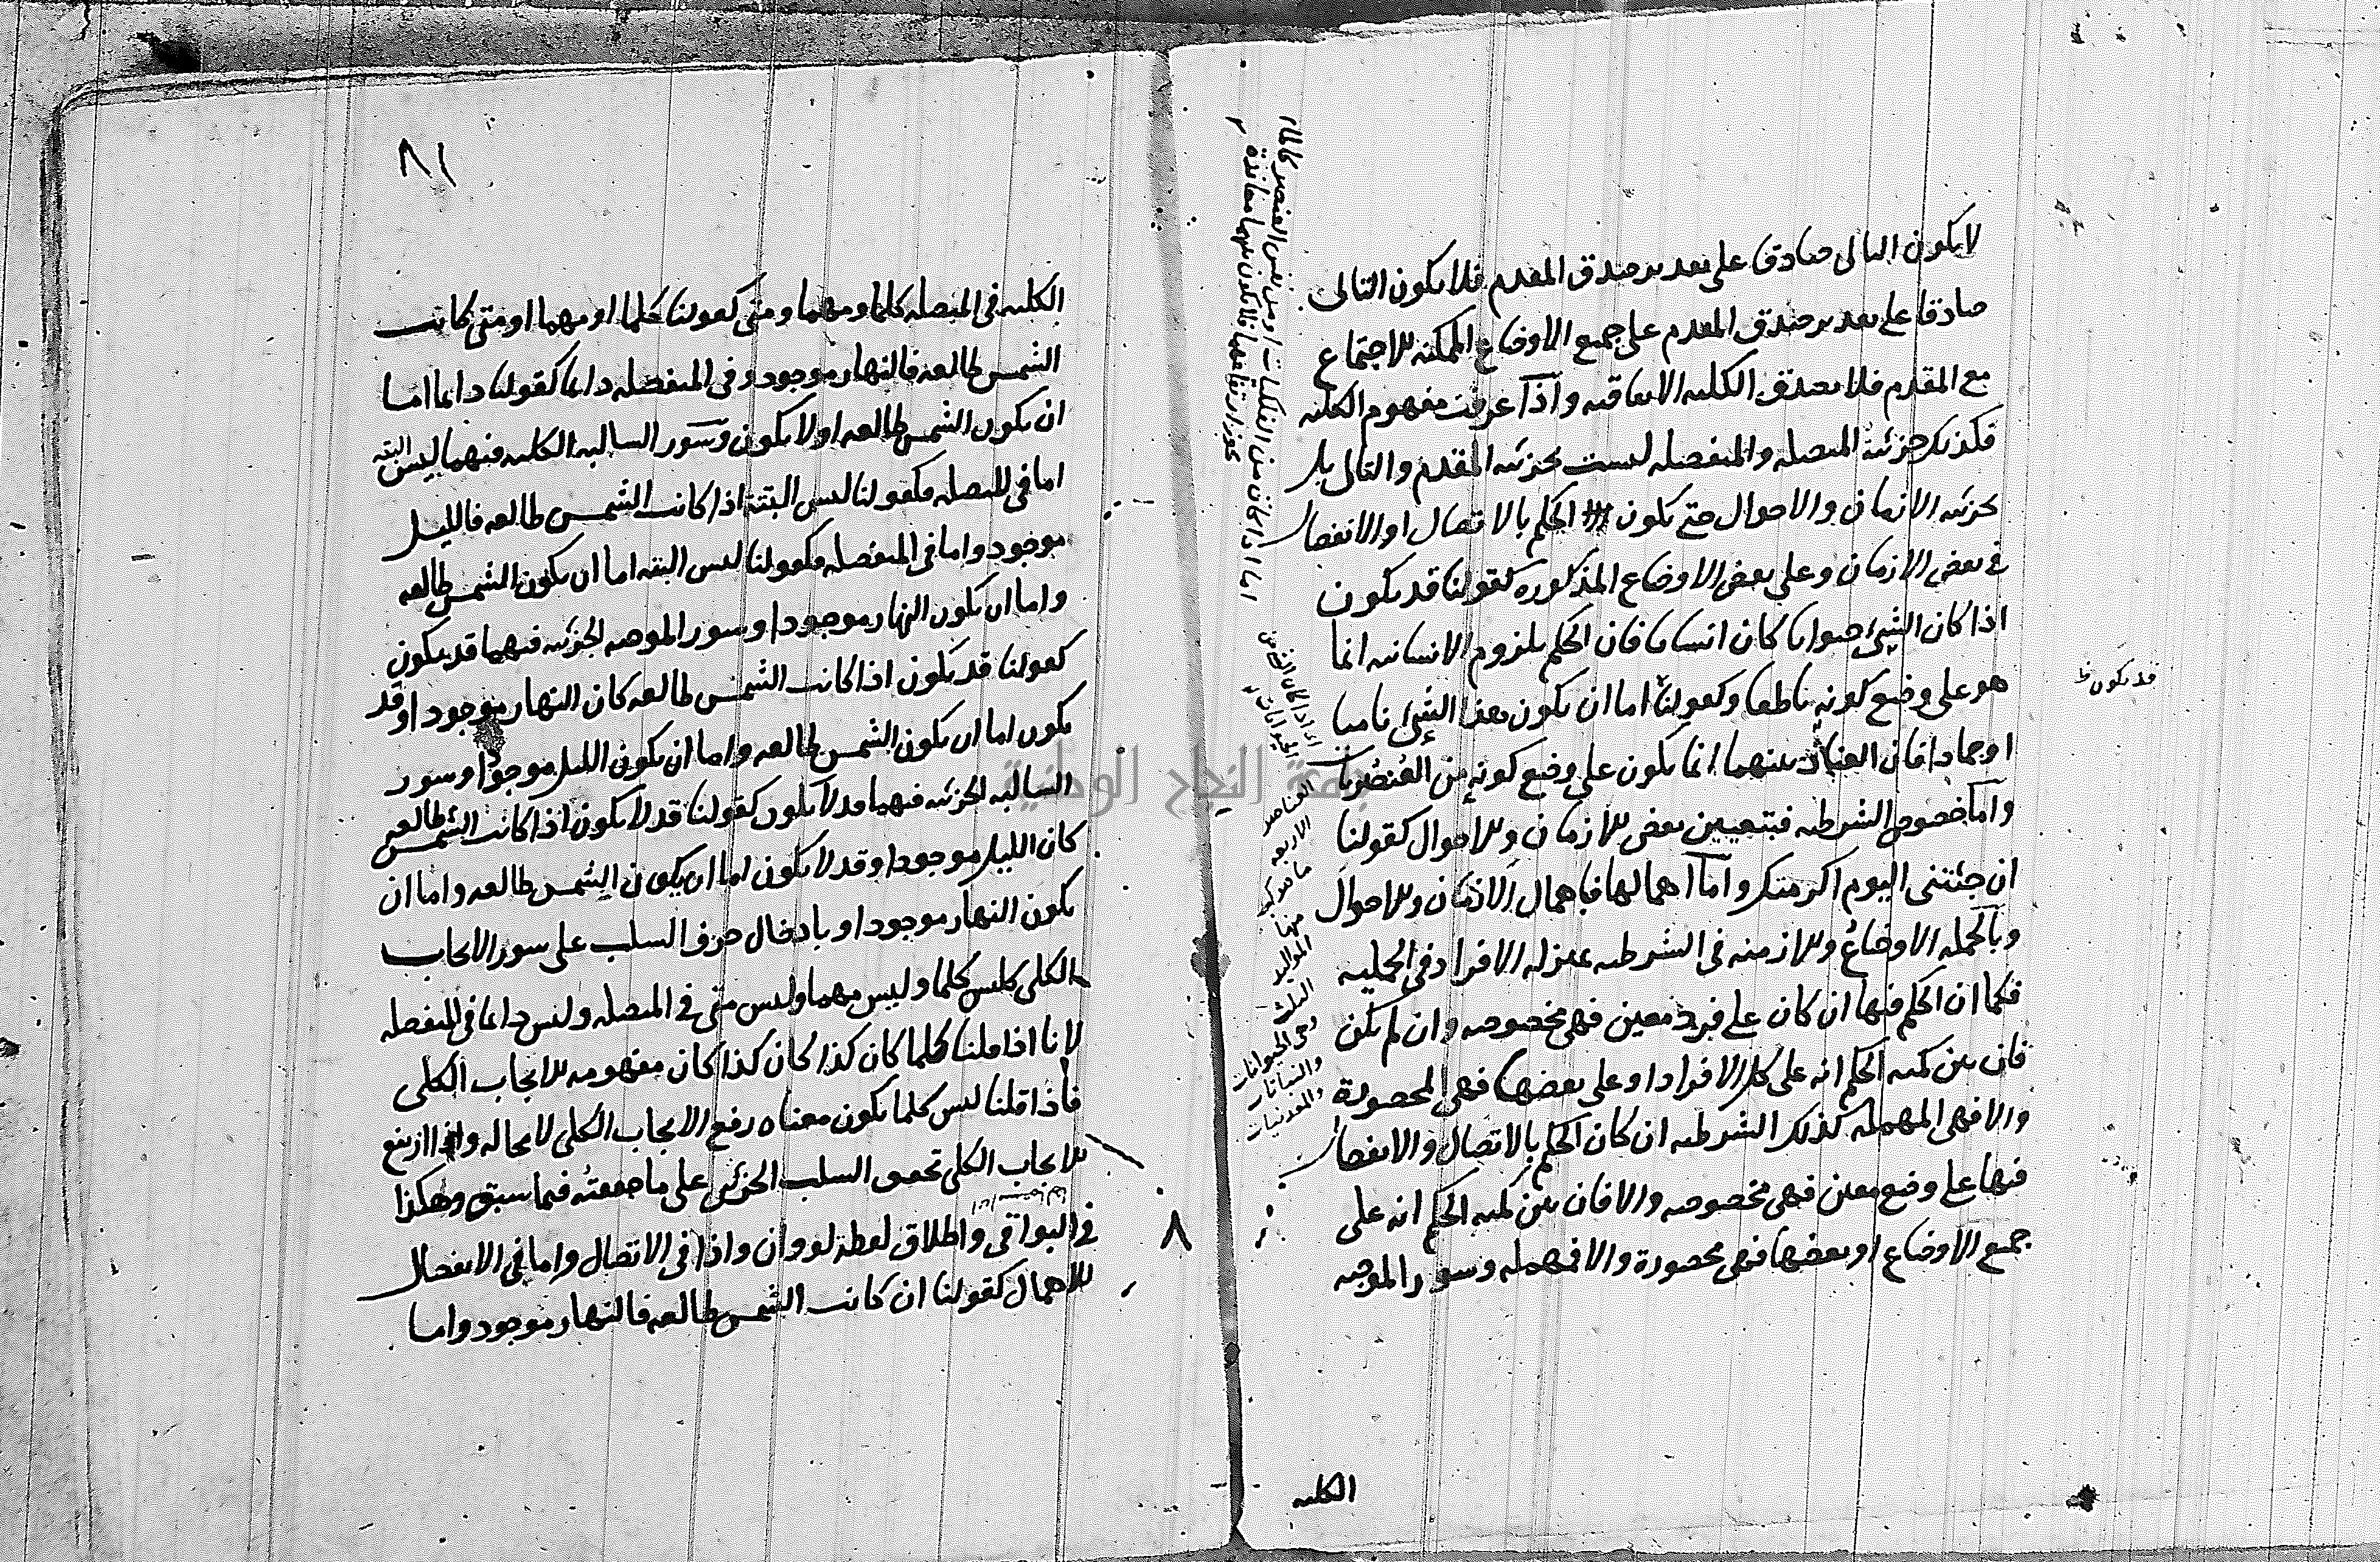 لا يكون التالى صادقا على تقدير صدق المقدم فلا يكون التالى
صادقا على تقدير صدق المقدم على جميع الاوضاع الممكنه للاجتماع
مع المقدم فلا يصدق الكليه الاتفاقيه واذا عرفت مفهوم الكليه
فكذلك جزئية المتصله والمنفصله ليست بجزئيه المقدم والتالى بل
بجزئيه الازمان والاحوال حتى يكون الحكم بالاتصال او الانفصال
فى بعض الازمان وعلى بعض الاوضاع المذكوره كقولنا قد يكون
اذا كان الشيئ حيوانا كان انسانا فان الحكم بلزوم الانسانيه انما
هو على وضع كونه ناطقا وكقولنا اما ان يكون هذا الشيئ ناميا
او جمادا فان العناد بينهما انما يكون على وضع كونه من العنصريات
واما خصوص الشرطيه فبتعيين بعض الازمان والاحوال كقولنا
ان جئتنى اليوم اكرمتك واما اهمالها فباهمال الازمان والاحوال
وبالجمله الاوضاع والازمنه فى الشرطيه بمنزله الافراد فى الحمليه
فكما ان الحكم فيها ان كان على فرد معين فهى مخصوصه وان لم يكن
فان بين كميه الحكم انه على كل الافراد او على بعضها فهى المحصورة
والا فهى المهمله كذلك الشرطيه ان كان الحكم بالاتصال والانفصال
فيها على وضع معين فهى مخصوصه والا فان بين كميه الحكم انه على
جميع الاوضاع او بعضها فهى محصورة والا فمهمله وسور الموجبه
الكليه
قد يكون ظ
اما اذا كان من الفلكيات او من نفس العنصر كالماء
يجوز ارتفاعهما فلا يكون بينهما معاندة
اى اذا كان الشئ من
الحيوانات
العناصر
الاربعه
ما تركب
منها
المواليد
الثلث
وهى الحيوانات
والنباتات
والمعدنيات
جامعة النجاح الوطنية
٨١
الكليه فى المتصله كلما ومهما ومتى كقولنا كلما او مهما او متى كانت
الشمس طالعه فالنهار موجود وفى المنفصله دائما كقولنا دائما اما
ان يكون الشمس طالعه او لا يكون وسور السالبه الكليه فيهما ليس البته
اما فى المتصله فكقولنا ليس البتة اذا كانت الشمس طالعه فالليل
موجود واما فى المنفصله فكقولنا ليس البته اما ان يكون الشمس طالعه
واما ان يكون النهار موجودا وسور الموجبه الجزئيه فيهما قد يكون
كقولنا قد يكون اذا كانت الشمس طالعه كان النهار موجودا وقد
يكون اما ان يكون الشمس طالعه واما ان يكون الليل موجودا وسور
السالبه الجزئيه فيهما قد لا يكون كقولنا قد لا يكون اذا كانت الشمس طالعه
كان الليل موجودا وقد لا يكون اما ان يكون الشمس طالعه واما ان
يكون النهار موجودا وبادخال حرف السلب على سور الايجاب
الكلى كليس كلما وليس مهما وليس متى فى المتصله وليس دائما فى المنفصله
لانا اذا قلنا كلما كان كذا كان كذا كان مفهومه الايجاب الكلى
فاذا قلنا ليس كلما يكون معناه رفع الايجاب الكلى لا محاله واذا ارتفع
الايجاب الكلى تحقق السلب الجزئى على ما حققته فيما سبق وهكذا
فى البواقى واطلاق لفظة لو وان واذا فى الاتصال واما فى الانفصال
للاهمال كقولنا ان كانت الشمس طالعه فالنهار موجود واما
٨